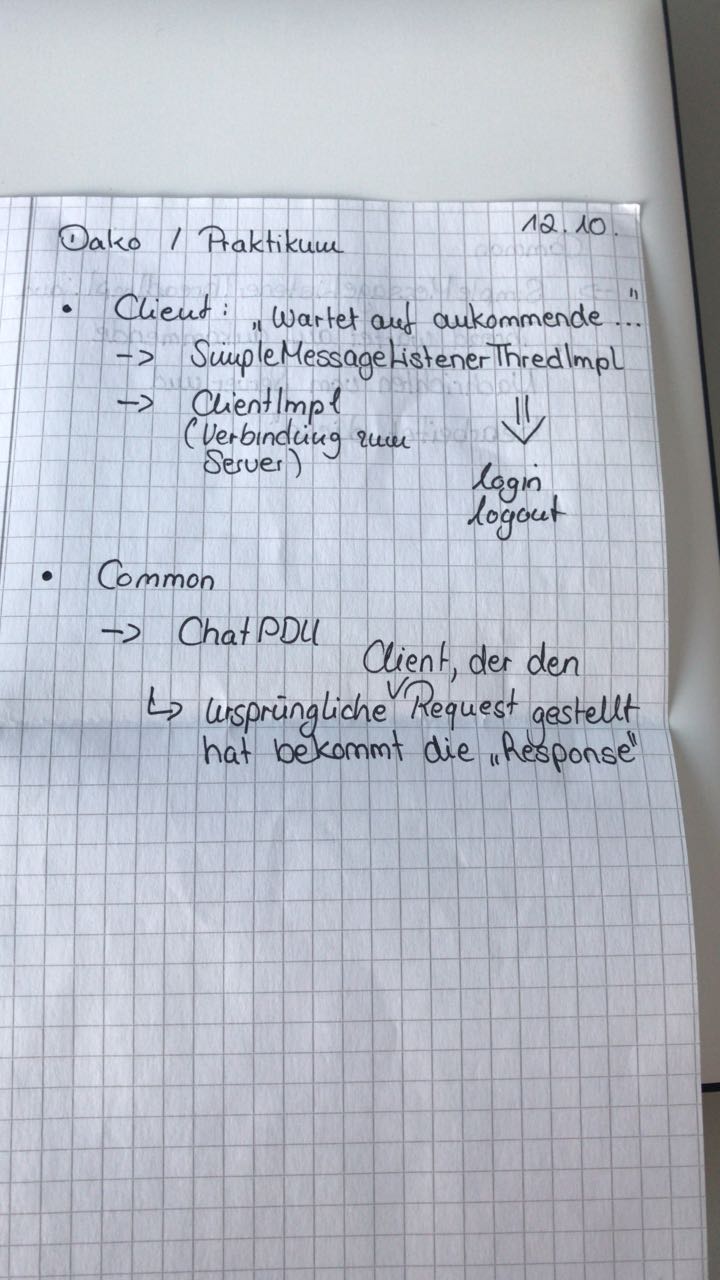 Dako / Praktikum 12.10.
• Client: „Wartet auf ankommende ..."
-> SimpleMessageListenerThredImpl
-> ClientImpl
(Verbindung zum
Server)
⇓
login
logout
• Common
-> ChatPDU
Client, der den
↳ ursprüngliche Request gestellt
hat bekommt die „Response"